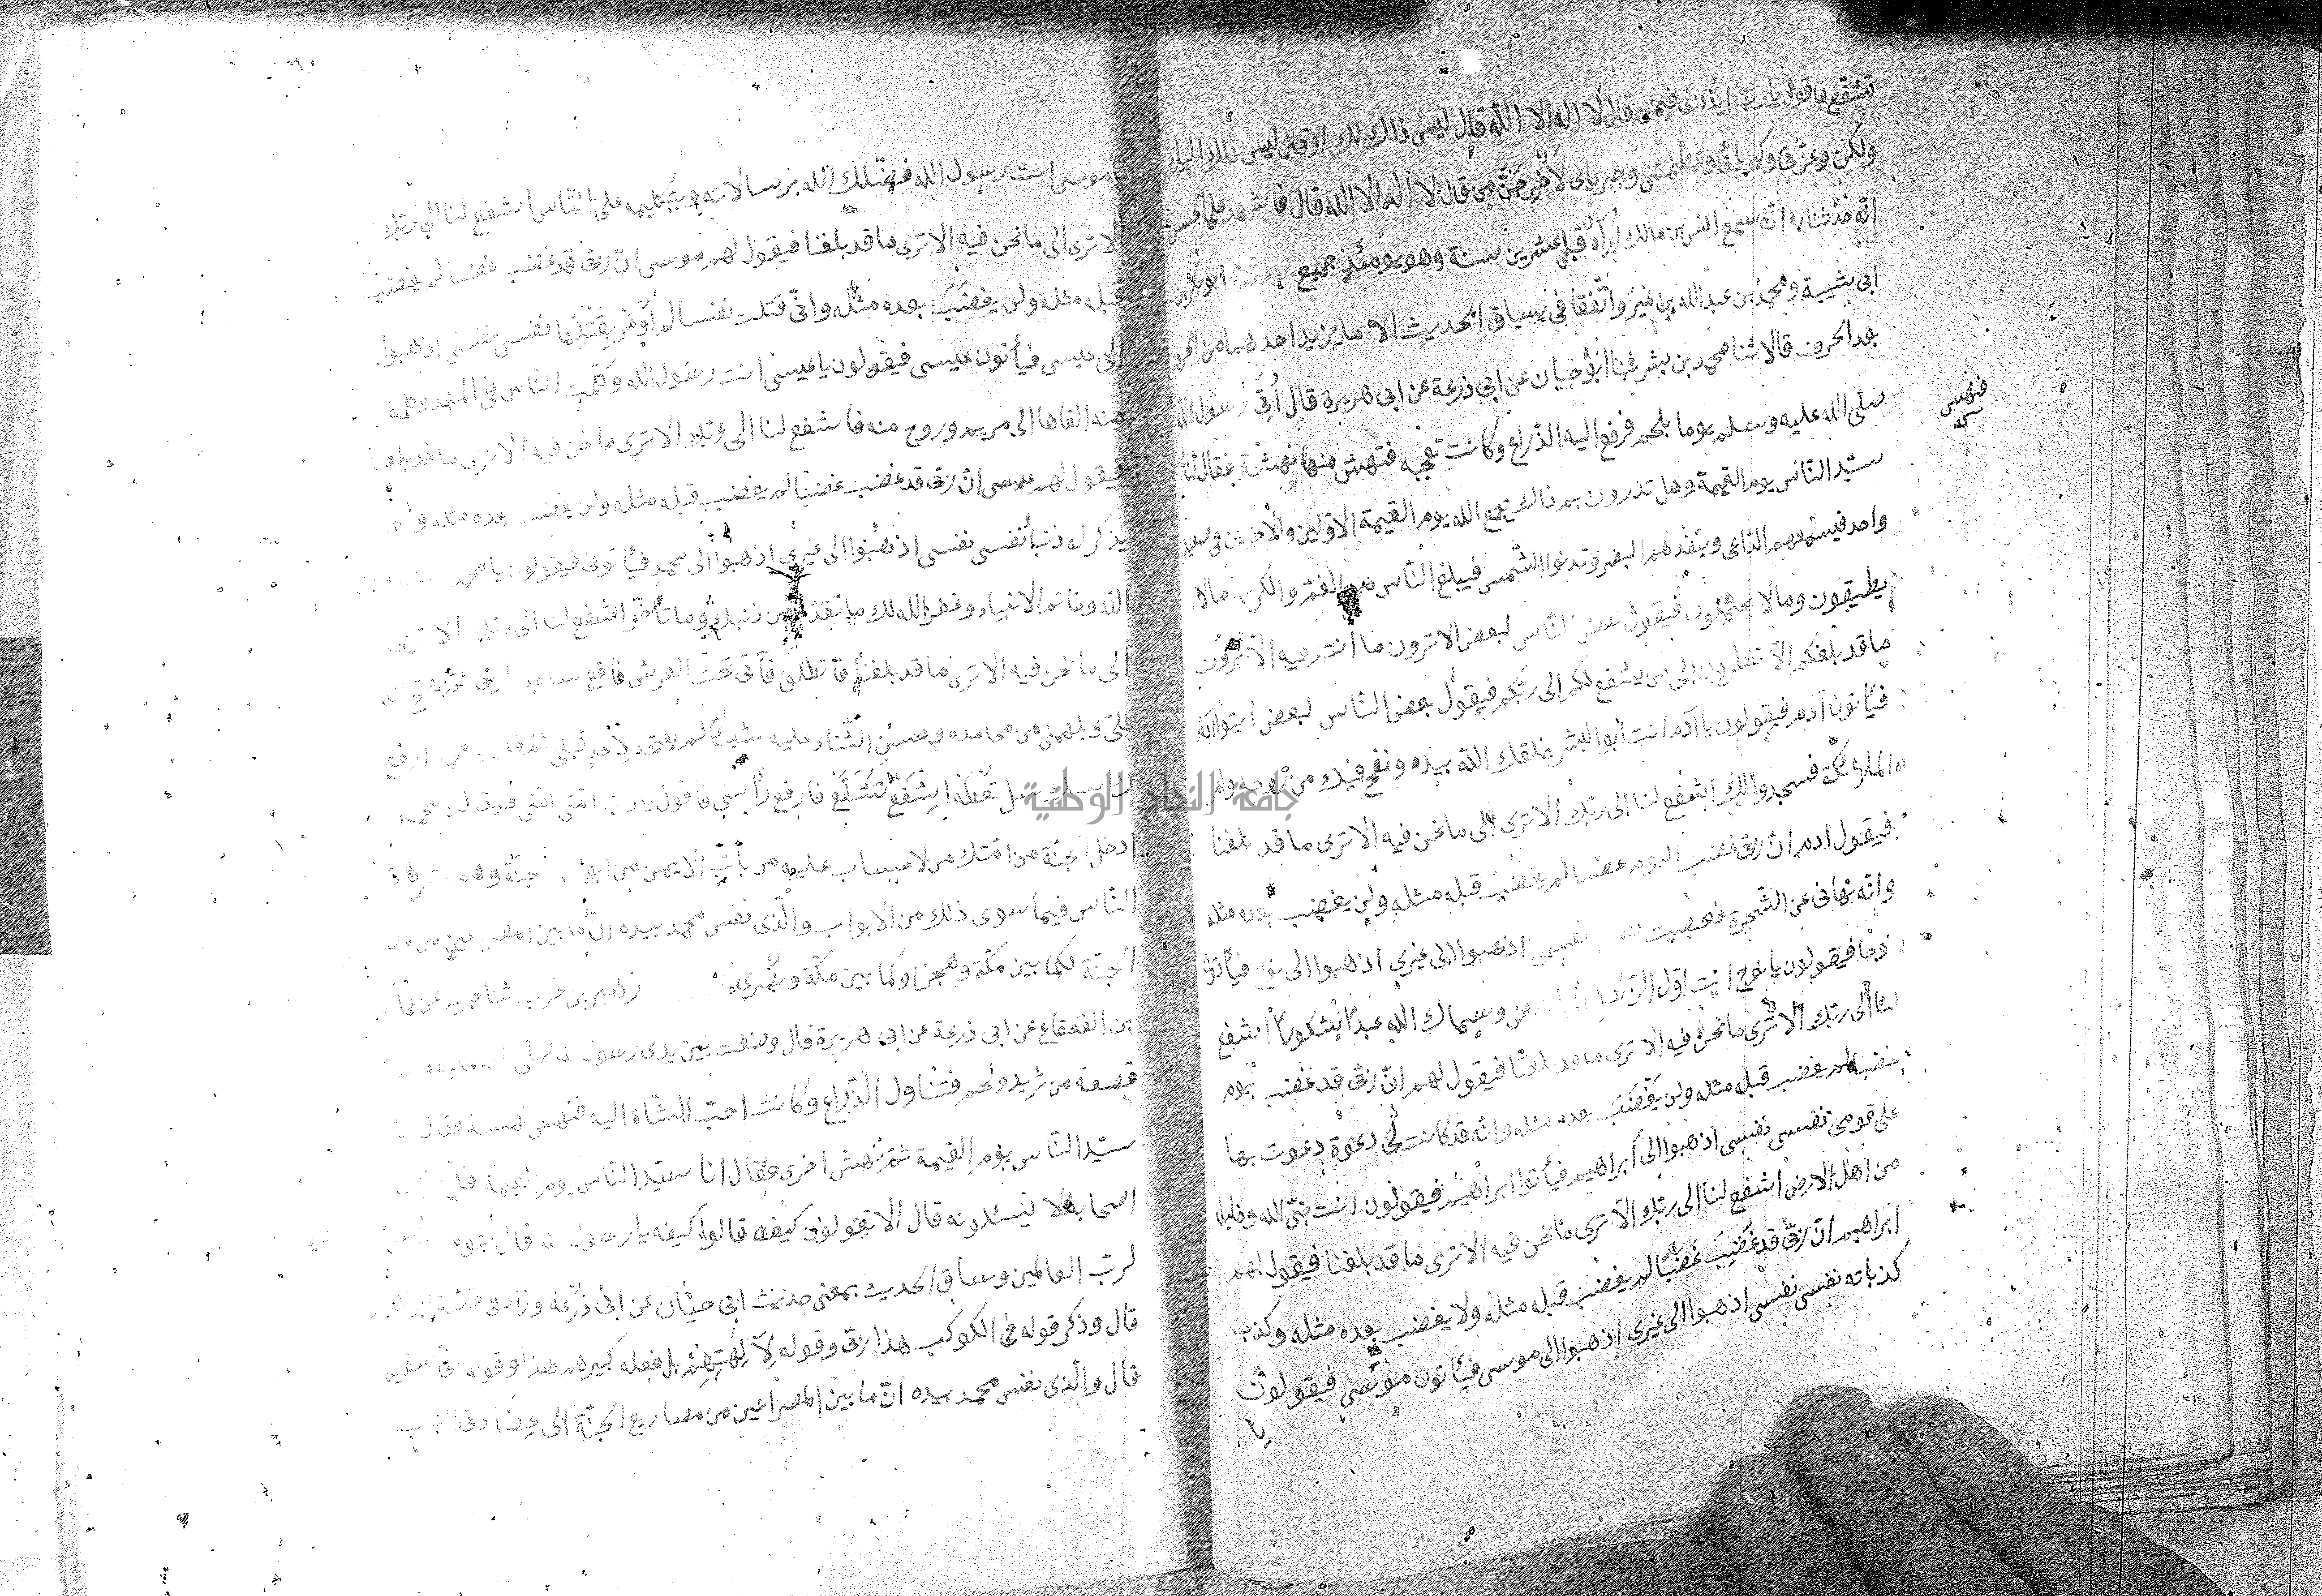 تشفع فاقول يا رب ايذن لى فيمن قال لا اله الا الله قال ليس ذاك لك او قال ليس ذلك اليك
ولكن وعزتى وكبريائى وعظمتى وجبريائى لاخرجن من قال لا اله الا الله قال فاشهد على الحسن
انه حدثنا به انه سمع انس بن مالك اراه قبل عشرين سنة وهو يومئذ جميع ابو بكر بن
ابى شيبة ومحمد بن عبد الله بن نمير واتفقا فى سياق الحديث الا ما يزيد احدهما من الحرف
بعد الحرف قالا ثنا محمد بن بشر ثنا ابو حيان عن ابى زرعة عن ابى هريرة قال أتى رسول الله
صلى الله عليه وسلم يوما بلحم فرفع اليه الذراع وكانت تعجبه فنهش منها نهشة فقال انا
فنهس
سيد الناس يوم القيمة وهل تدرون بم ذاك يجمع الله يوم القيمة الاولين والاخرين فى صعيد
واحد فيسمعهم الداعى وينفذهم البصر وتدنوا الشمس فيبلغ الناس من الغم والكرب مالا
يطيقون ومالا يحتملون فيقول بعض الناس لبعض الا ترون ما انتم فيه الا ترون
ما قد بلغكم الا تنظرون الى من يشفع لكم الى ربكم فيقول بعض الناس لبعض ايتوا آدم
فيأتون آدم فيقولون يا آدم انت ابو البشر خلقك الله بيده ونفخ فيك من روحه وامر
الملائكة فسجدوا لك اشفع لنا الى ربك الا ترى الى ما نحن فيه الا ترى ما قد بلغنا
فيقول ادم ان ربى غضب اليوم غضبا لم يغضب قبله مثله ولن يغضب بعده مثله
وانه نهانى عن الشجرة فعصيت نفسى اذهبوا الى غيرى اذهبوا الى نوح فيأتون
نوحا فيقولون يا نوح انت اول الرسل الارض وسماك الله عبدا شكورا اشفع
لنا الى ربك الا ترى ما نحن فيه الا ترى ما قد بلغنا فيقول لهم ان ربى قد غضب اليوم
غضبا لم يغضب قبله مثله ولن يغضب بعده مثله وانه قد كانت لى دعوة دعوت بها
على قومى نفسى نفسى اذهبوا الى ابراهيم فيأتوا ابراهيم فيقولون انت نبى الله وخليله
من اهل الارض اشفع لنا الى ربك الا ترى ما نحن فيه الا ترى ما قد بلغنا فيقول لهم
ابراهيم ان ربى قد غضب غضبا لم يغضب قبله مثله ولا يغضب بعده مثله وكذب
كذباته نفسى نفسى اذهبوا الى غيرى اذهبوا الى موسى فيأتون موسى فيقولون
يا
يا موسى انت رسول الله فضلك الله برسالاته وبتكليمه على الناس اشفع لنا الى ربك
الا ترى الى ما نحن فيه الا ترى ما قد بلغنا فيقول لهم موسى ان ربى قد غضب غضبا لم يغضب
قبله مثله ولن يغضب بعده مثله وانى قتلت نفسا لم اومر بقتلها نفسى نفسى اذهبوا
الى عيسى فيأتون عيسى فيقولون يا عيسى انت رسول الله وكلمت الناس فى المهد وكلمة
منه القاها الى مريم وروح منه فاشفع لنا الى ربك الا ترى ما نحن فيه الا ترى ما قد بلغنا
فيقول لهم عيسى ان ربى قد غضب غضبا لم يغضب قبله مثله ولن يغضب بعده مثله ولم
يذكر له ذنبا نفسى نفسى اذهبوا الى غيرى اذهبوا الى محمد فيأتونى فيقولون يا محمد
الله وخاتم الانبياء وغفر الله لك ما تقدم من ذنبك وما تأخر اشفع لنا الى ربك الا ترى
الى ما نحن فيه الا ترى ما قد بلغنا فانطلق فآتى تحت العرش فاقع ساجدا لربى ثم يفتح الله
على ويلهمنى من محامده وحسن الثناء عليه شيئا لم يفتحه لاحد قبلى ارفع
راسك سل تعطه اشفع تشفع فارفع رأسى فاقول يا رب امتى امتى فيقال يا محمد
ادخل الجنة من امتك من لا حساب عليه من باب الايمن من ابواب الجنة وهم شركاء
الناس فيما سوى ذلك من الابواب والذى نفس محمد بيده ان ما بين المصراعين من
الجنة لكما بين مكة وهجر او كما بين مكة وبصرى زهير بن حرب ثنا جرير عن عمارة
بن القعقاع عن ابى زرعة عن ابى هريرة قال وضعت بين يدى رسول الله صلى الله عليه
قصعة من ثريد ولحم فتناول الذراع وكانت احب الشاة اليه فنهش نهسة فقال انا
سيد الناس يوم القيمة ثم نهش اخرى فقال انا سيد الناس يوم القيمة فلما
اصحابه لا يسئلونه قال الا تقولون كيفه قالوا كيفه يا رسول الله قال يقوم
لرب العالمين وساق الحديث بمعنى حديث ابى حيان عن ابى زرعة وزاد فى قصة ابراهيم
قال وذكر قوله فى الكوكب هذا ربى وقوله لآلهتهم بل فعله كبيرهم هذا وقوله انى سقيم
قال والذى نفس محمد بيده ان ما بين المصراعين من مصاريع الجنة الى عضادتى الباب
جامعة النجاح الوطنية